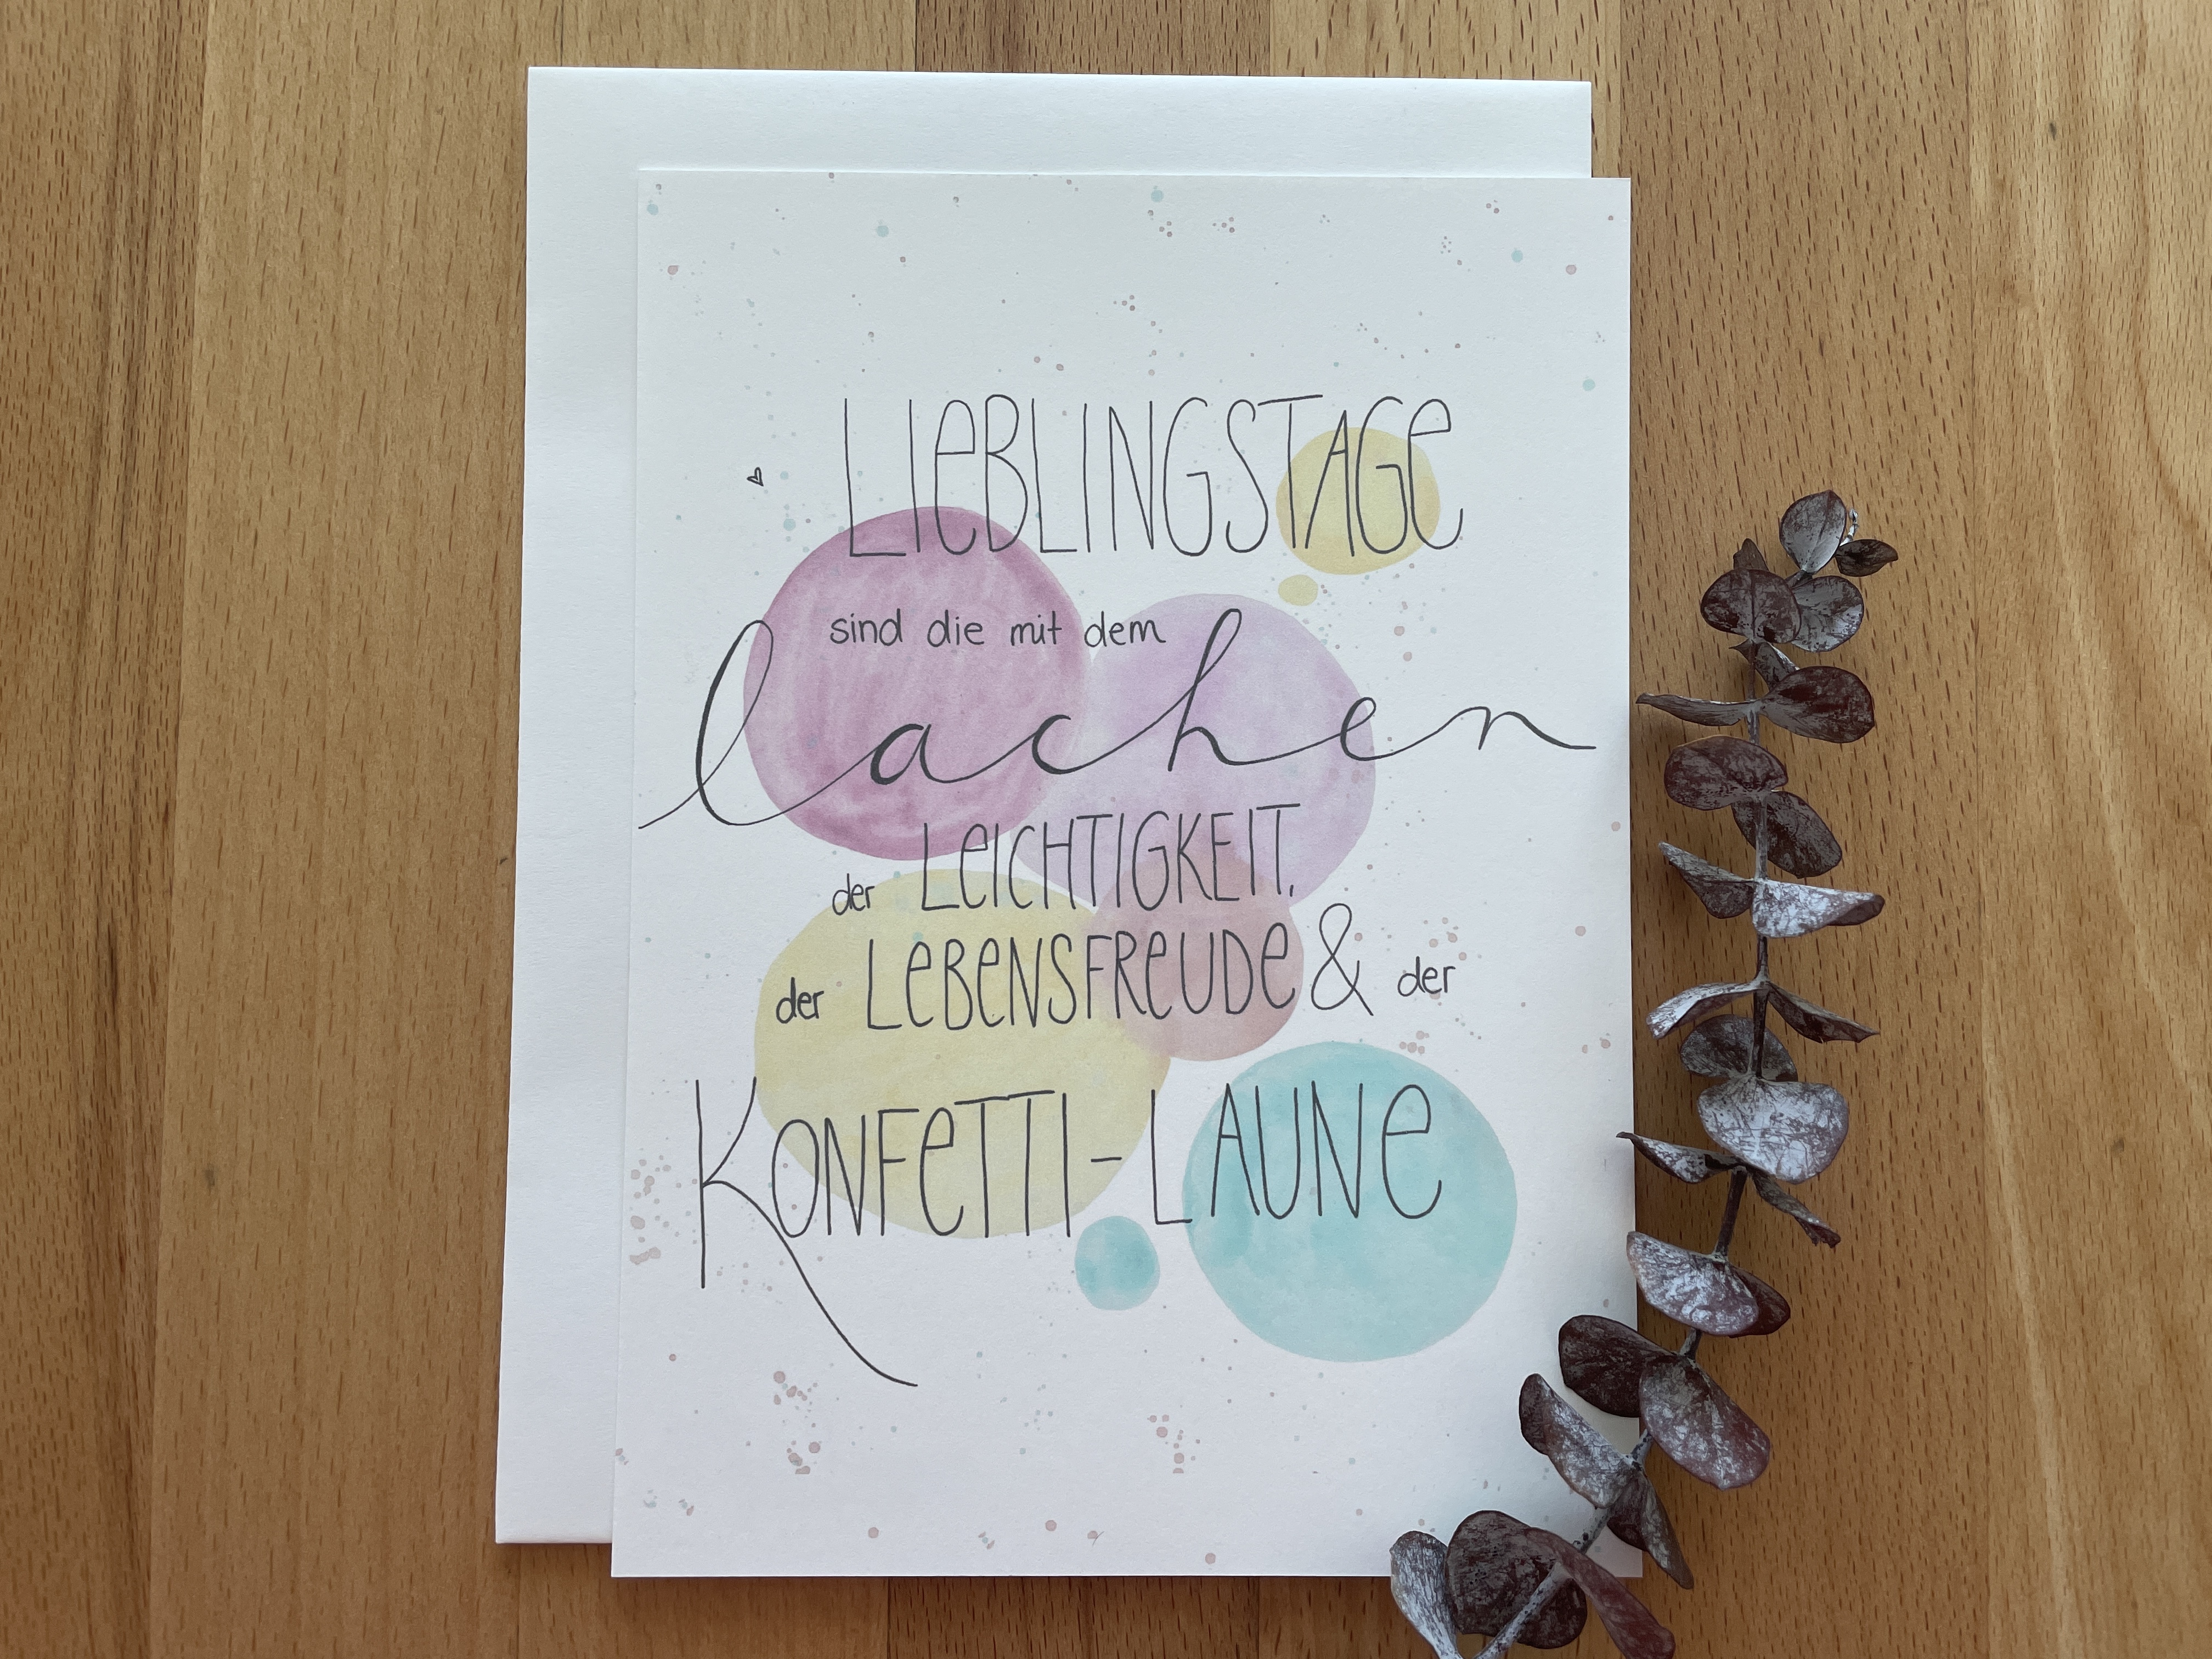 LIeBLINGSTAGe
sind die mit dem
lachen
der LeICHTIGKEIT,
der LeBeNSFReUDe & der
KONFeTTI-LAUNe